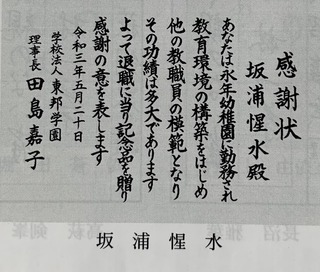 感謝状
坂浦惺水殿
あなたは永年幼稚園に勤務され
教育環境の構築をはじめ
他の教職員の模範となり
その功績は多大であります
よって退職に当り記念品を贈り
感謝の意を表します
令和三年五月二十日
学校法人東邦学園
理事長田島嘉子
坂浦惺水